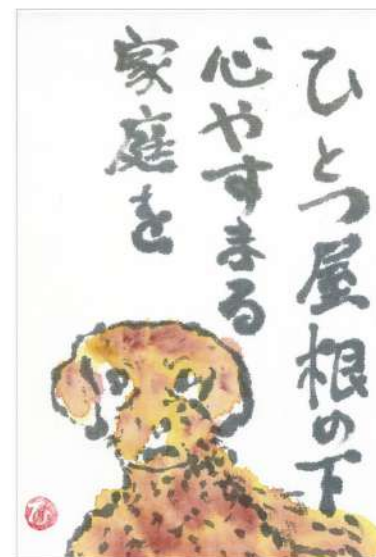 ひとつ屋根の下
心やすまる
家庭を